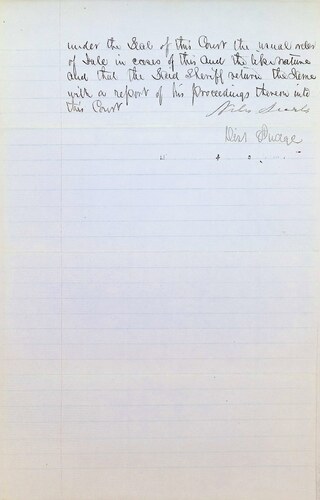 under the Seal of this Court the usual order
of Sale in cases of this and the like nature
and that the said Sheriff return the same
with a report of his proceedings thereon into
this Court Niles Searls
Dist Judge